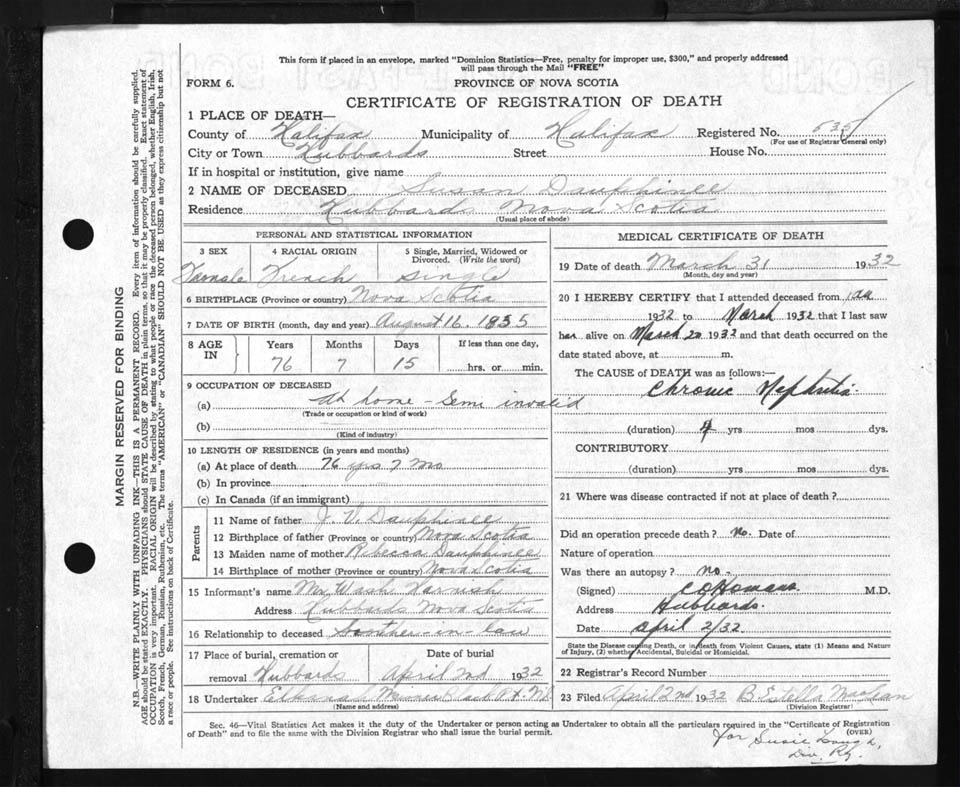 This form if placed in an envelope, marked "Dominion Statistics—Free, penalty for improper use, $300," and properly addressed
will pass through the Mail "FREE"
FORM 6. PROVINCE OF NOVA SCOTIA
CERTIFICATE OF REGISTRATION OF DEATH
1 PLACE OF DEATH—
County of Halifax Municipality of Halifax Registered No.
(For use of Registrar General only)
City or Town Hubbards Street House No.
If in hospital or institution, give name
2 NAME OF DECEASED Susan Dauphinee
Residence Hubbards Nova Scotia
(Usual place of abode)
PERSONAL AND STATISTICAL INFORMATION
3 SEX 4 RACIAL ORIGIN 5 Single, Married, Widowed or
Divorced. (Write the word)
Female French Single
6 BIRTHPLACE (Province or country) Nova Scotia
7 DATE OF BIRTH (month, day and year) August 16. 1855
8 AGE IN Years Months Days If less than one day,
76 7 15 hrs. or min.
9 OCCUPATION OF DECEASED
(a) At home - Semi invalid
(Trade or occupation or kind of work)
(b)
(Kind of industry)
10 LENGTH OF RESIDENCE (in years and months)
(a) At place of death 76 yrs 7 mo
(b) In province
(c) In Canada (if an immigrant)
Parents
11 Name of father J. V. Dauphinee
12 Birthplace of father (Province or country) Nova Scotia
13 Maiden name of mother Rebecca Dauphinee
14 Birthplace of mother (Province or country) Nova Scotia
15 Informant's name Wash Harnish
Address Hubbards Nova Scotia
16 Relationship to deceased Brother-in-law
17 Place of burial, cremation or Date of burial
removal Hubbards April 2nd 1932
18 Undertaker Elkanah
(Name and address)
MEDICAL CERTIFICATE OF DEATH
19 Date of death March 31 1932
(Month, day and year)
20 I HEREBY CERTIFY that I attended deceased from Jan
1932 to March 1932 that I last saw
her alive on March 20 1932 and that death occurred on the
date stated above, at m.
The CAUSE OF DEATH was as follows:—
Chronic Nephritis
(duration) 4 yrs mos dys.
CONTRIBUTORY
(duration) yrs mos dys.
21 Where was disease contracted if not at place of death?
Did an operation precede death? No. Date of
Nature of operation
Was there an autopsy? no.
(Signed) C O Homans M.D.
Address Hubbards.
Date April 2/32
State the Disease causing Death, or in death from Violent Causes, state (1) Means and Nature
of Injury, (2) whether Accidental, Suicidal or Homicidal.
22 Registrar's Record Number
23 Filed April 2nd 1932 B. Estella MacLean
(Division Registrar)
Sec. 46—Vital Statistics Act makes it the duty of the Undertaker or person acting as Undertaker to obtain all the particulars required in the "Certificate of Registration
of Death" and to file the same with the Division Registrar who shall issue the burial permit. (OVER)
for Susie
Div. Rg.
MARGIN RESERVED FOR BINDING
N.B.—WRITE PLAINLY WITH UNFADING INK—THIS IS A PERMANENT RECORD. Every item of information should be carefully supplied.
AGE should be stated EXACTLY. PHYSICIANS should STATE CAUSE OF DEATH in plain terms, so that it may be properly classified. Exact statement of
OCCUPATION is very important. RACIAL ORIGIN will be described by stating to what people or race the deceased person belonged, whether English, Irish,
Scotch, French, German, Russian, Ruthenian, etc. The terms "AMERICAN" or "CANADIAN" SHOULD NOT BE USED as they express citizenship but not
a race or people. See instructions on back of Certificate.